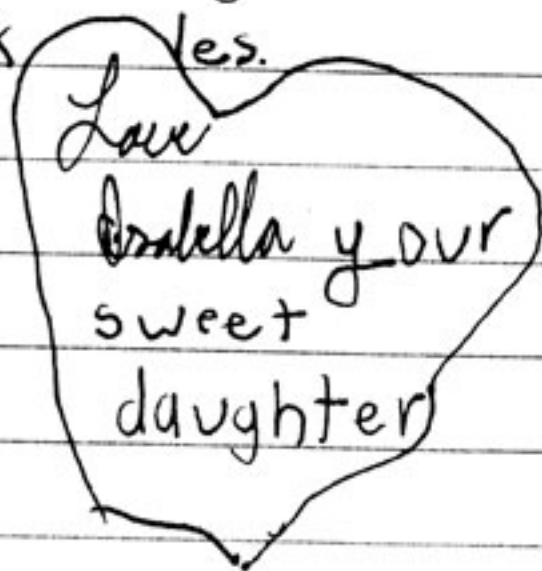 les.
Love
Isabella your
sweet
daughter